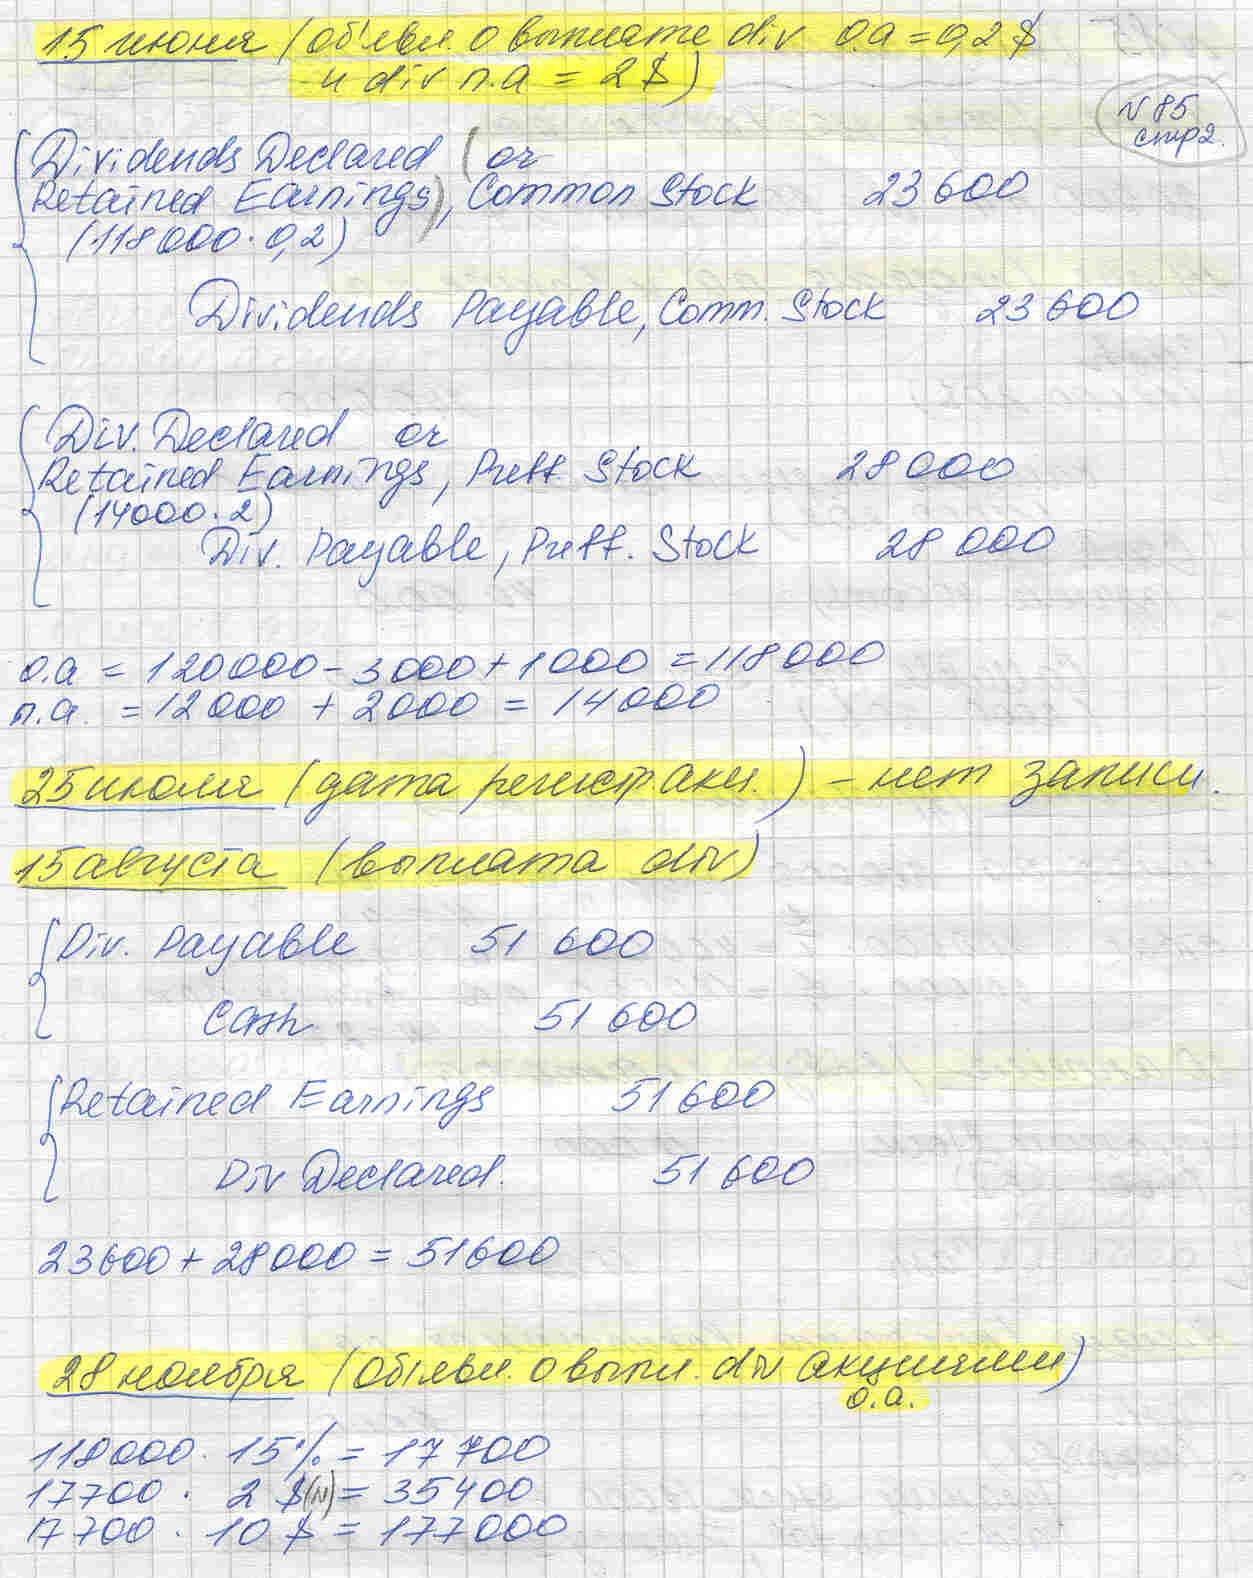 15 июня (объявл. о выплате div о.а = 0,2 $
и div п.а = 2 $)
N 85
стр 2.
Dividends Declared (or
Retained Earnings), Common Stock 23 600
(118 000 · 0,2)
Dividends Payable, Comm. Stock 23 600
Div. Declared or
Retained Earnings, Preff. Stock 28 000
(14000 · 2)
Div. Payable, Preff. Stock 28 000
о.а = 120 000 - 3 000 + 1 000 = 118 000
п.а. = 12 000 + 2000 = 14 000
25 июля (дата регистр акц.) - нет записи.
15 августа (выплата div)
Div. Payable 51 600
Cash 51 600
Retained Earnings 51 600
Div Declared. 51 600
23600 + 28000 = 51600
28 ноября (Объявл. о выпл. div акциями)
о.а.
118000 · 15% = 17 700
17700 · 2 $(N) = 35400
17 700 · 10 $ = 177000